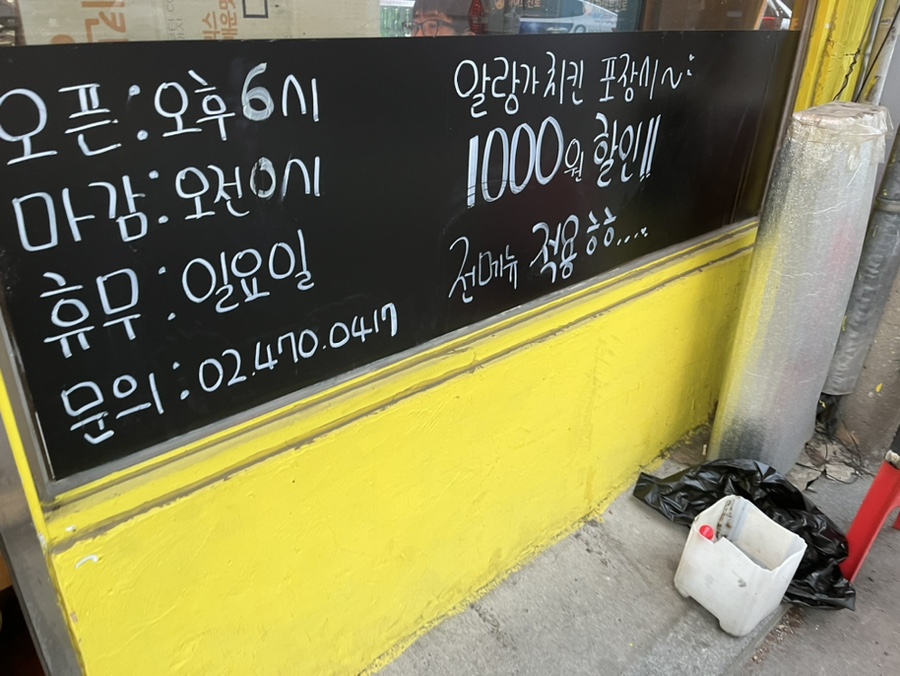 오픈 : 오후 6시
마감 : 오전 0시
휴무 : 일요일
문의 : 02.470.0417
알랑가치킨 포장시~
1000원 할인!!
전메뉴 적용ㅎㅎ....